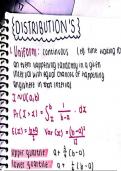 {DISTRIBUTION'S}
1. Uniform: continuous (eg time waiting for
an event happening randomly in a given
interval with equal chances of happening
anywhere in that interval
X ~ U(a,b)
E(X) = a+b/2 Var(X) = (b-a)²/12
upper quartile: a + 3/4 (b-a)
lower quartile: a + 1/4 (b-a)